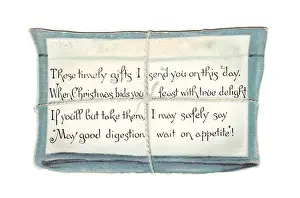 These timely gifts I send you on this day.
When Christmas bids you feast with true delight
If you'll but take them, I may safely say
"May good digestion wait on appetite"!